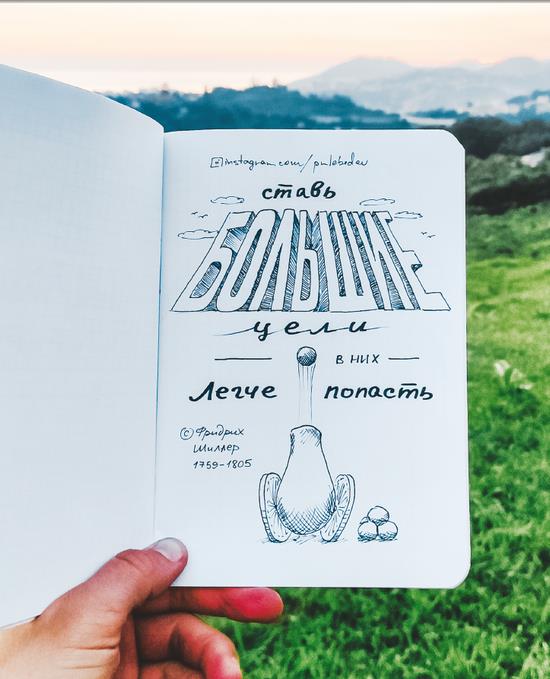 instagram.com/pnlebedev
ставь
БОЛЬШИЕ
цели
в них
Легче попасть
© Фридрих
Шиллер
1759-1805